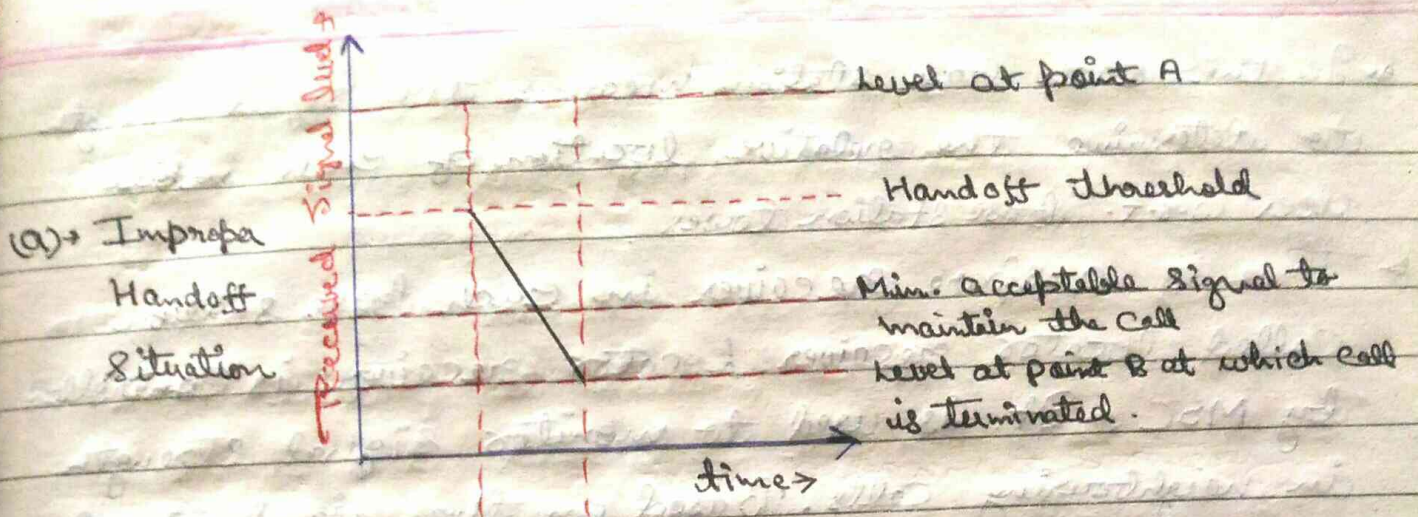 Received Signal level→
Level at point A
Handoff threshold
(a)→ Improper
Handoff
Situation
Min. acceptable signal to
maintain the call
Level at point B at which call
is terminated.
time→